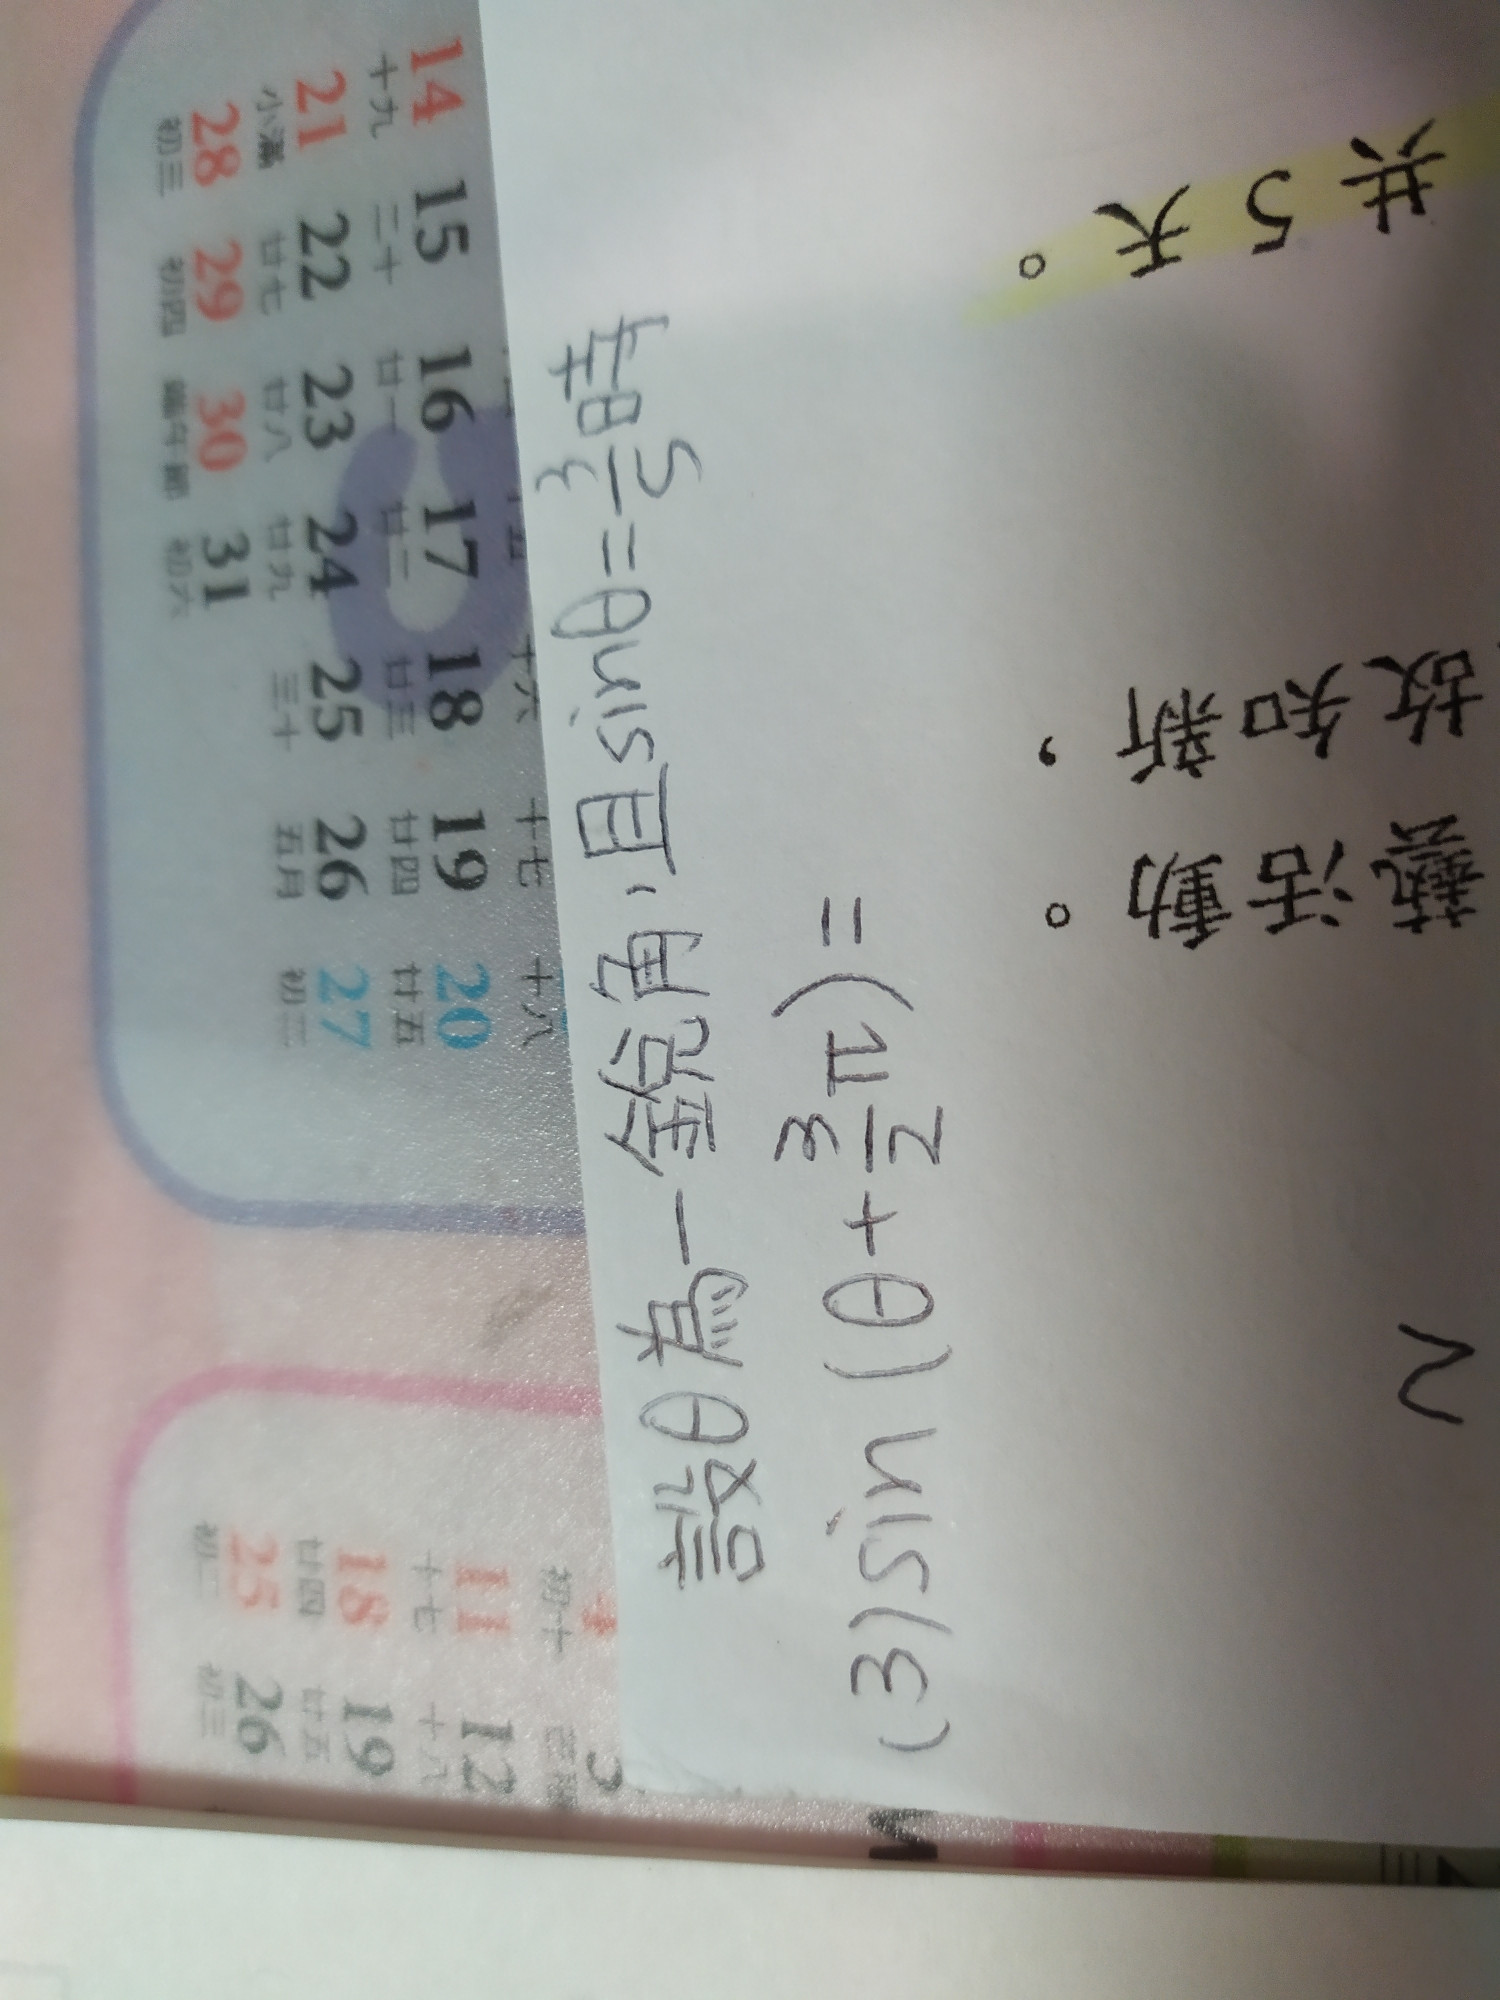 設θ為一銳角，且sinθ=3/5時
(3)sin(θ+3/2π)=
共5天。
故知新，
藝活動。
14 15 16 17 18 19 20
十九 二十 廿一 廿二 廿三 廿四 廿五
21 22 23 24 25 26 27
小滿 廿七 廿八 廿九 三十 五月 初二
28 29 30 31
初三 初四 端午節 初六
十六 十七 十八
11 12
十七 十八
18 19
廿四 廿五
25 26
初二 初三
初十